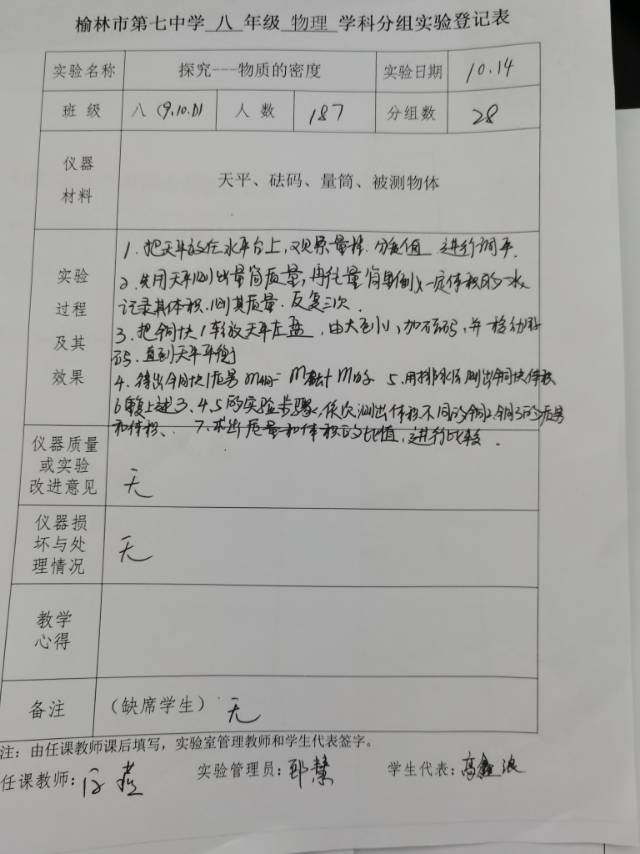 榆林市第七中学 八 年级 物理 学科分组实验登记表
实验名称 探究---物质的密度 实验日期 10.14
班 级 八(9.10.11) 人 数 187 分组数 28
仪器
材料
天平、砝码、量筒、被测物体
实验
过程
及其
效果
1. 把天平放在水平台上,观察量程、分度值 进行调平.
2. 先用天平测出量筒质量,再往量筒里倒入一定体积的水
记录其体积,测其质量.反复三次.
3. 把铜块1轻放天平左盘,由大到小,加砝码,并移动游
码.直到天平平衡
4. 得出铜块1质量 5. 用排水法测出铜块体积
6 重复上述3.4.5的实验步骤,依次测出体积不同的铜2.铜3的质量
和体积、 7. 求出质量和体积的比值,进行比较.
仪器质量
或实验
改进意见
无
仪器损
坏与处
理情况
无
教学
心得
备注 (缺席学生) 无
注:由任课教师课后填写,实验室管理教师和学生代表签字。
任课教师: 实验管理员: 学生代表:高鑫浪